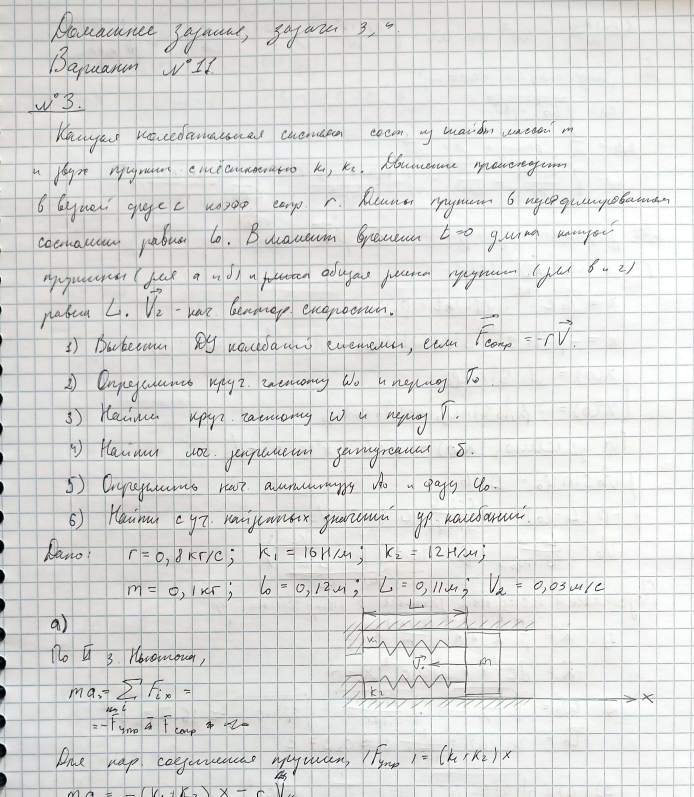 Домашнее задание, задачи 3, 4.
Вариант №11.
№3.
Каждая колебательная система сост. из шайбы массой m
и двух пружин с жёсткостью k₁, k₂. Движение происходит
в вязкой среде с коэфф сопр. r. Длины пружин в недеформированом
состоянии равны l₀. В момент времени t=0 длина каждой
пружины (для а и б) и общая длина пружин (для в и г)
равна L. V⃗₂ - нач вектор скорости.
1) Вывести ДУ колебаний системы, если F⃗сопр = -rV⃗.
2) Определить круг. частоту ω₀ и период T₀.
3) Найти круг. частоту ω и период T.
4) Найти лог. декремент затухания δ.
5) Определить нач. амплитуду A₀ и фазу φ₀.
6) Найти с уч. найденных значений ур. колебаний.
Дано: r = 0,8 кг/с; k₁ = 16 Н/м; k₂ = 12 Н/м;
m = 0,1 кг; l₀ = 0,12 м; L = 0,11 м; V₂ = 0,03 м/с
L
а)
k₁
По II з. Ньютона,
m
k₂
x
= -Fупр Fсопр
Для пар. соединения пружин, |Fупр| = (k₁+k₂) x